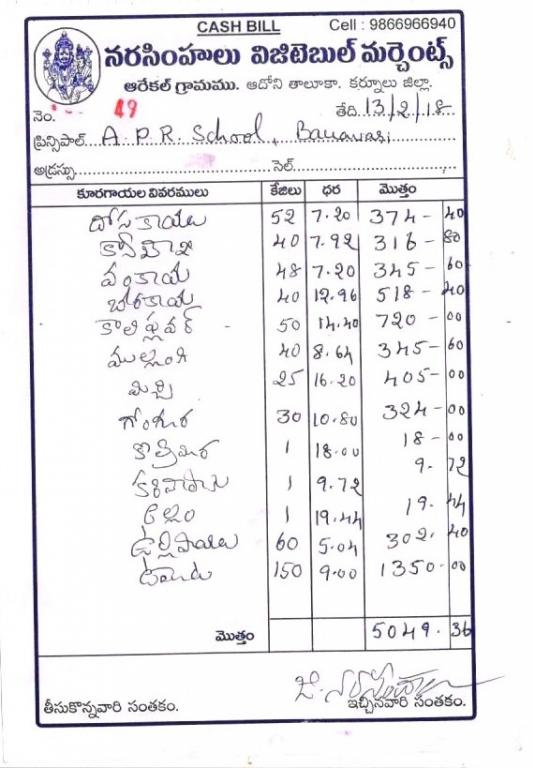 CASH BILL Cell : 9866966940
నరసింహులు విజిటెబుల్ మర్చెంట్స్
ఆరేకల్ గ్రామము. ఆదోని తాలూకా. కర్నూలు జిల్లా.
నెం. 49 తేది 13/2/18
ప్రిన్సిపాల్ A. P. R. School, Banavasi
అడ్రస్సు సెల్
కూరగాయల వివరములు కేజీలు ధర మొత్తం
దోసకాయలు 52 7.20 374-40
40 7.92 316-80
వంకాయ 48 7.20 345-60
బీరకాయ 40 12.96 518-40
కాలిఫ్లవర్ 50 14.40 720-00
ముల్లంగి 40 8.64 345-60
మిర్చి 25 16.20 405-00
గోంగూర 30 10.80 324-00
కొత్తిమిర 1 18.00 18-00
కరివేపాకు 1 9.72 9.72
అల్లం 1 19.44 19.44
ఉల్లిపాయలు 60 5.04 302.40
టమోటు 150 9.00 1350-00
మొత్తం 5049.36
తీసుకొన్నవారి సంతకం. ఇచ్చినవారి సంతకం.